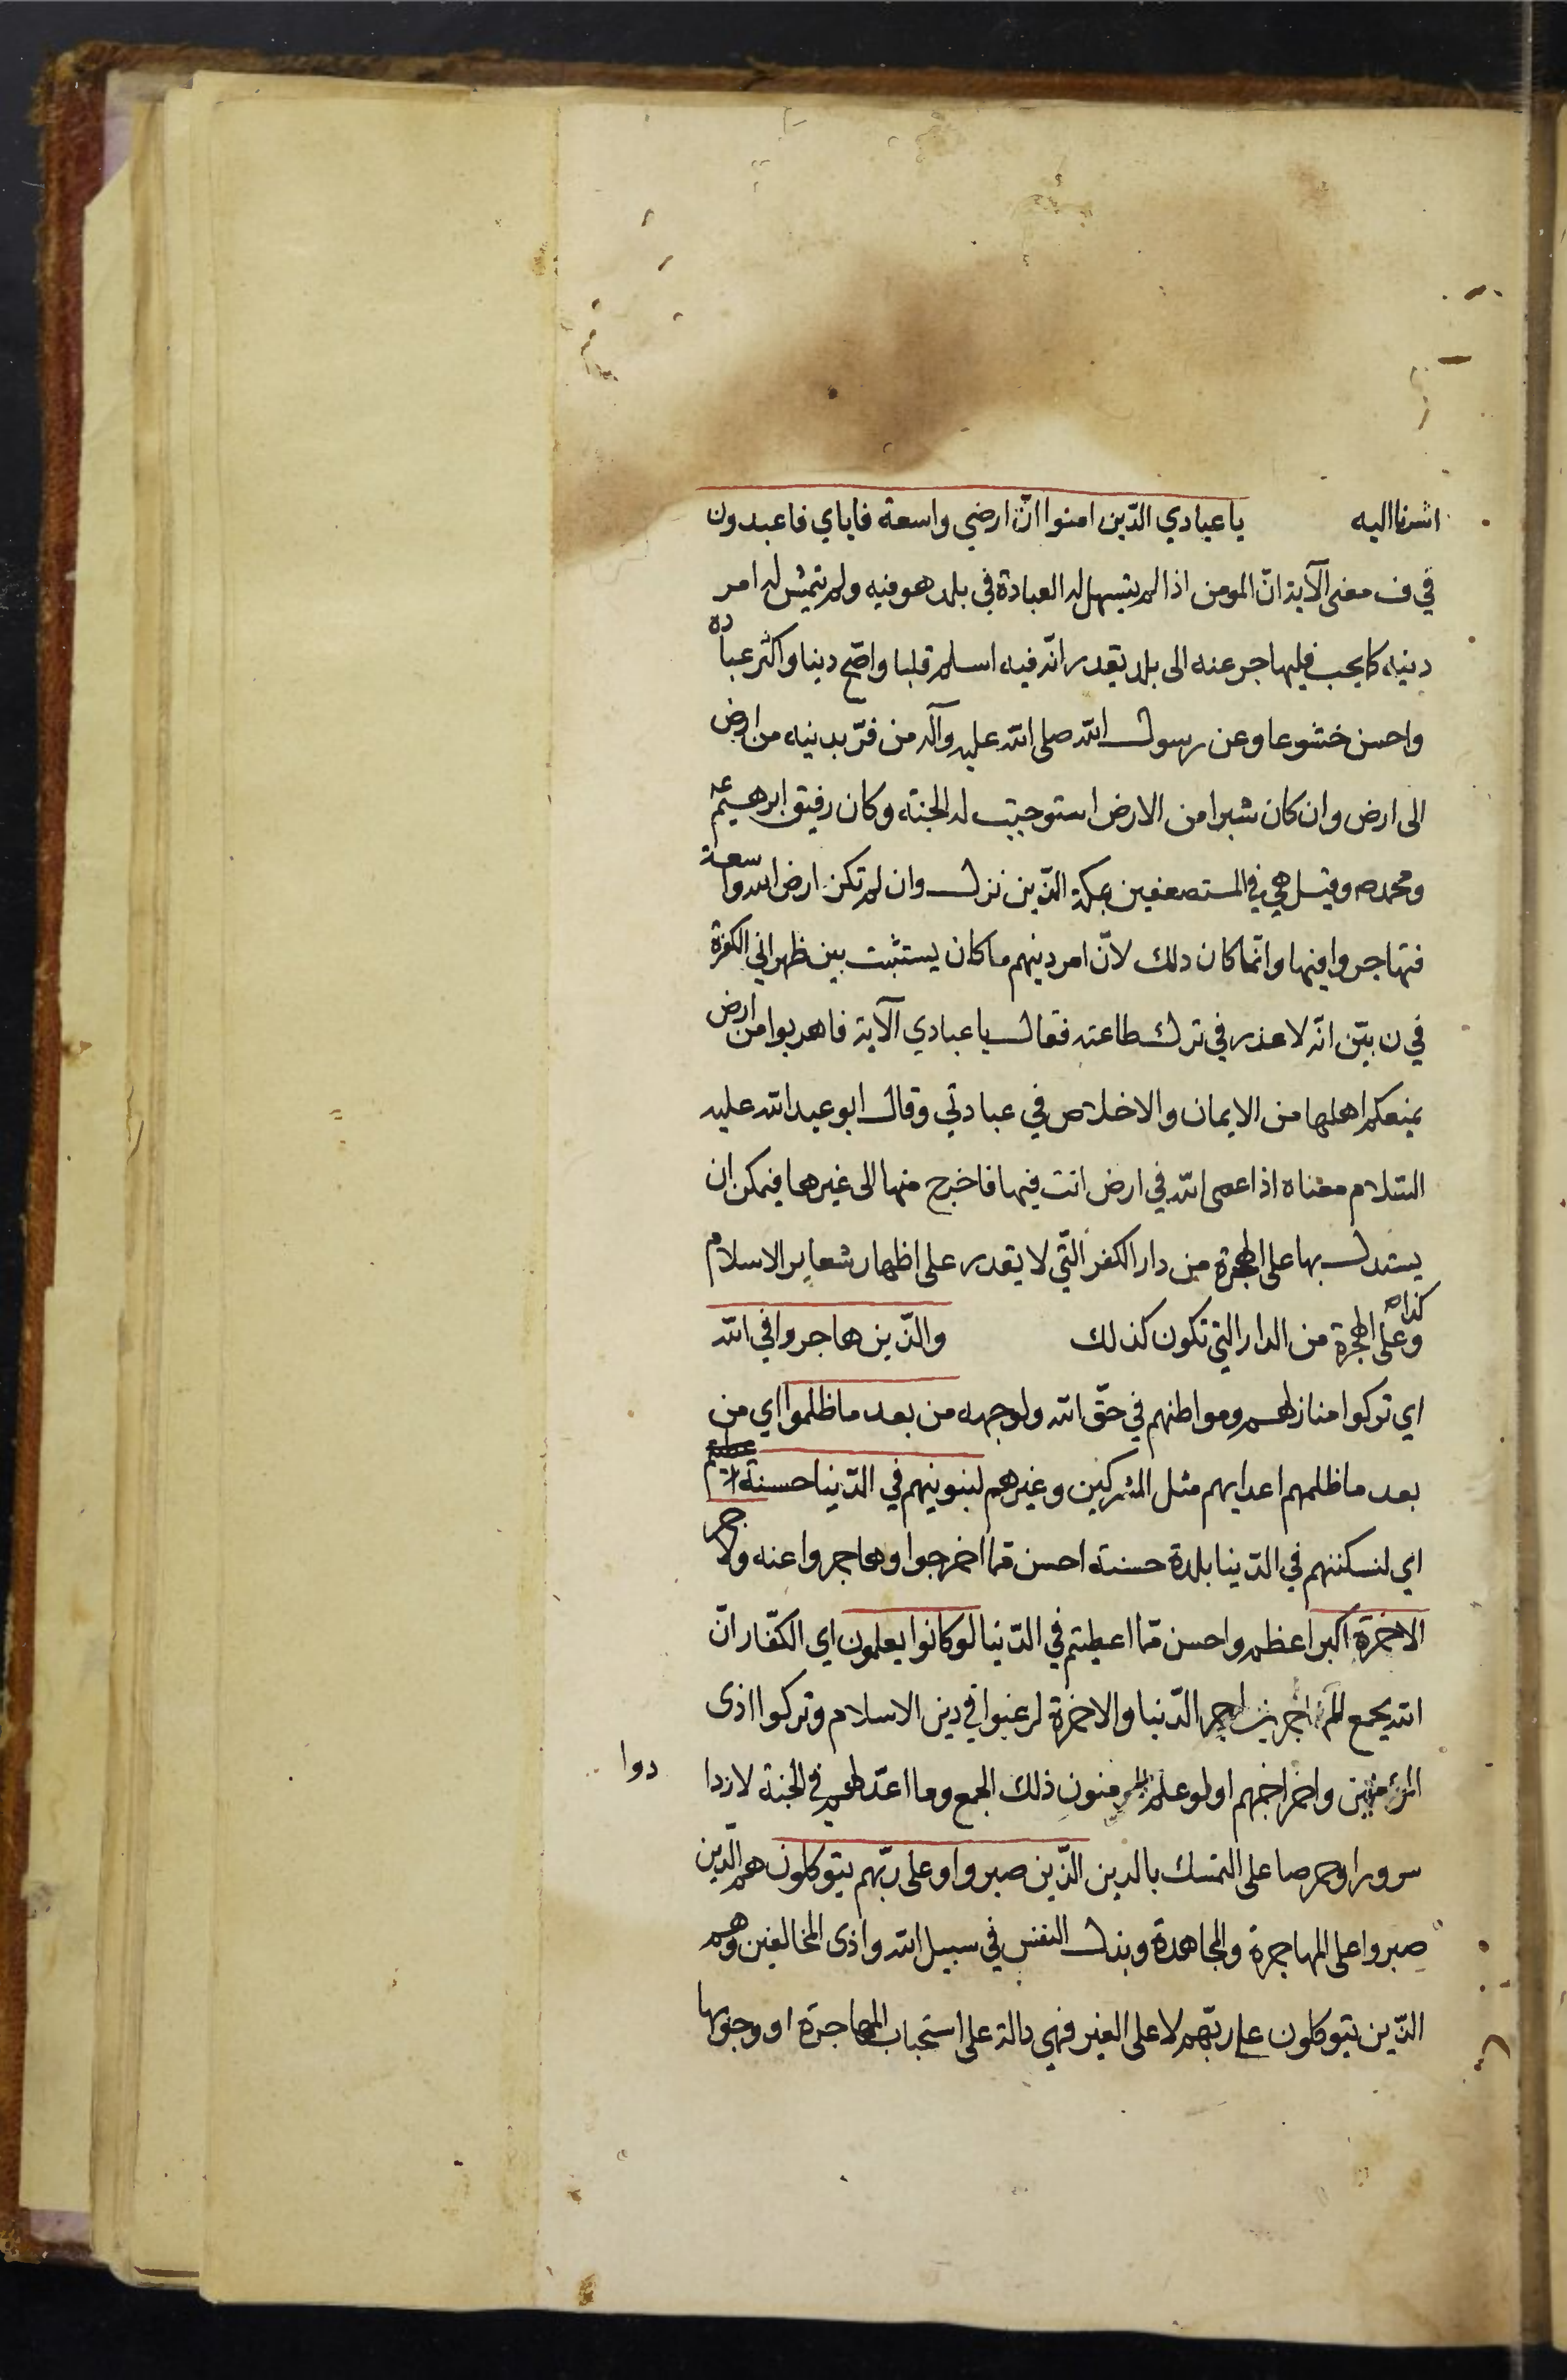 اشرنا اليه يا عبادي الذّين امنوا انّ ارضي واسعة فاياي فاعبدون
في ف معنى الآية انّ المومن اذا لم يتسهل له العبادة في بلد هو فيه ولم يتمش له امر
دينه كما يجب فليهاجر عنه الى بلد يقدر انّه فيه اسلم قلبا واصّح دينا واكثر عبادة
واحسن خشوعا وعن رسول الله صلى الله عليه وآله من فرّ بدينه من ارض
الى ارض وان كان شبرا من الارض استوجبت له الجنة وكان رفيق ابرهيم ع
ومحمد ص وقيل هي في المستضعفين بمكة الذّين نزل وان لم تكن ارض الله واسعة
فتهاجروا فيها وانّما كان دلك لانّ امر دينهم ما كان يستثبت بين ظهراني الكفرة
في ن بيّن انّه لا عذر في ترك طاعته فقال يا عبادي الآية فاهربوا من ارض
يمنعكم اهلها من الايمان والاخلاص في عبادتي وقال ابو عبد الله عليه
السّلام معناه اذا عصى الله في ارض انت فيها فاخرج منها الى غيرها فيمكن ان
يستدل بها على الهجرة من دار الكفر الّتي لا يقدر على اظهار شعاير الاسلام
وعلى الهجرة من الدار التي تكون كذلك والذّين هاجروا في الله
اي تركوا منازلهم ومواطنهم في حقّ الله ولوجهه من بعد ما ظلموا اي من
بعد ما ظلمهم اعدايهم مثل المشركين وغيرهم لنبوينهم في الدّينا حسنة
اي لنسكننهم في الدّينا بلدة حسنة احسن ممّا اخرجوا وهاجروا عنه ولاجر
الاخرة اكبر اعظم واحسن ممّا اعطيتم في الدّنيا لو كانوا يعلمون اي الكفّار انّ
الله يجمع لهم اجرين اجر الدّنيا والاخرة لرغبوا في دين الاسلام وتركوا اذى
المؤمنين واخراجهم او لو علم المؤمنون ذلك الجمع وما اعدّ لهم في الجنة لازدا
دوا
سرورا وحرصا على التمسك بالدين الذّين صبروا وعلى ربّهم يتوكلون هم الّذين
صبروا على المهاجرة والمجاهدة وبذل النفس في سبيل الله واذى المخالفين وهم
الذّين يتوكلون على ربّهم لا على الغير فهي دالة على استحباب المهاجرة او وجوبها